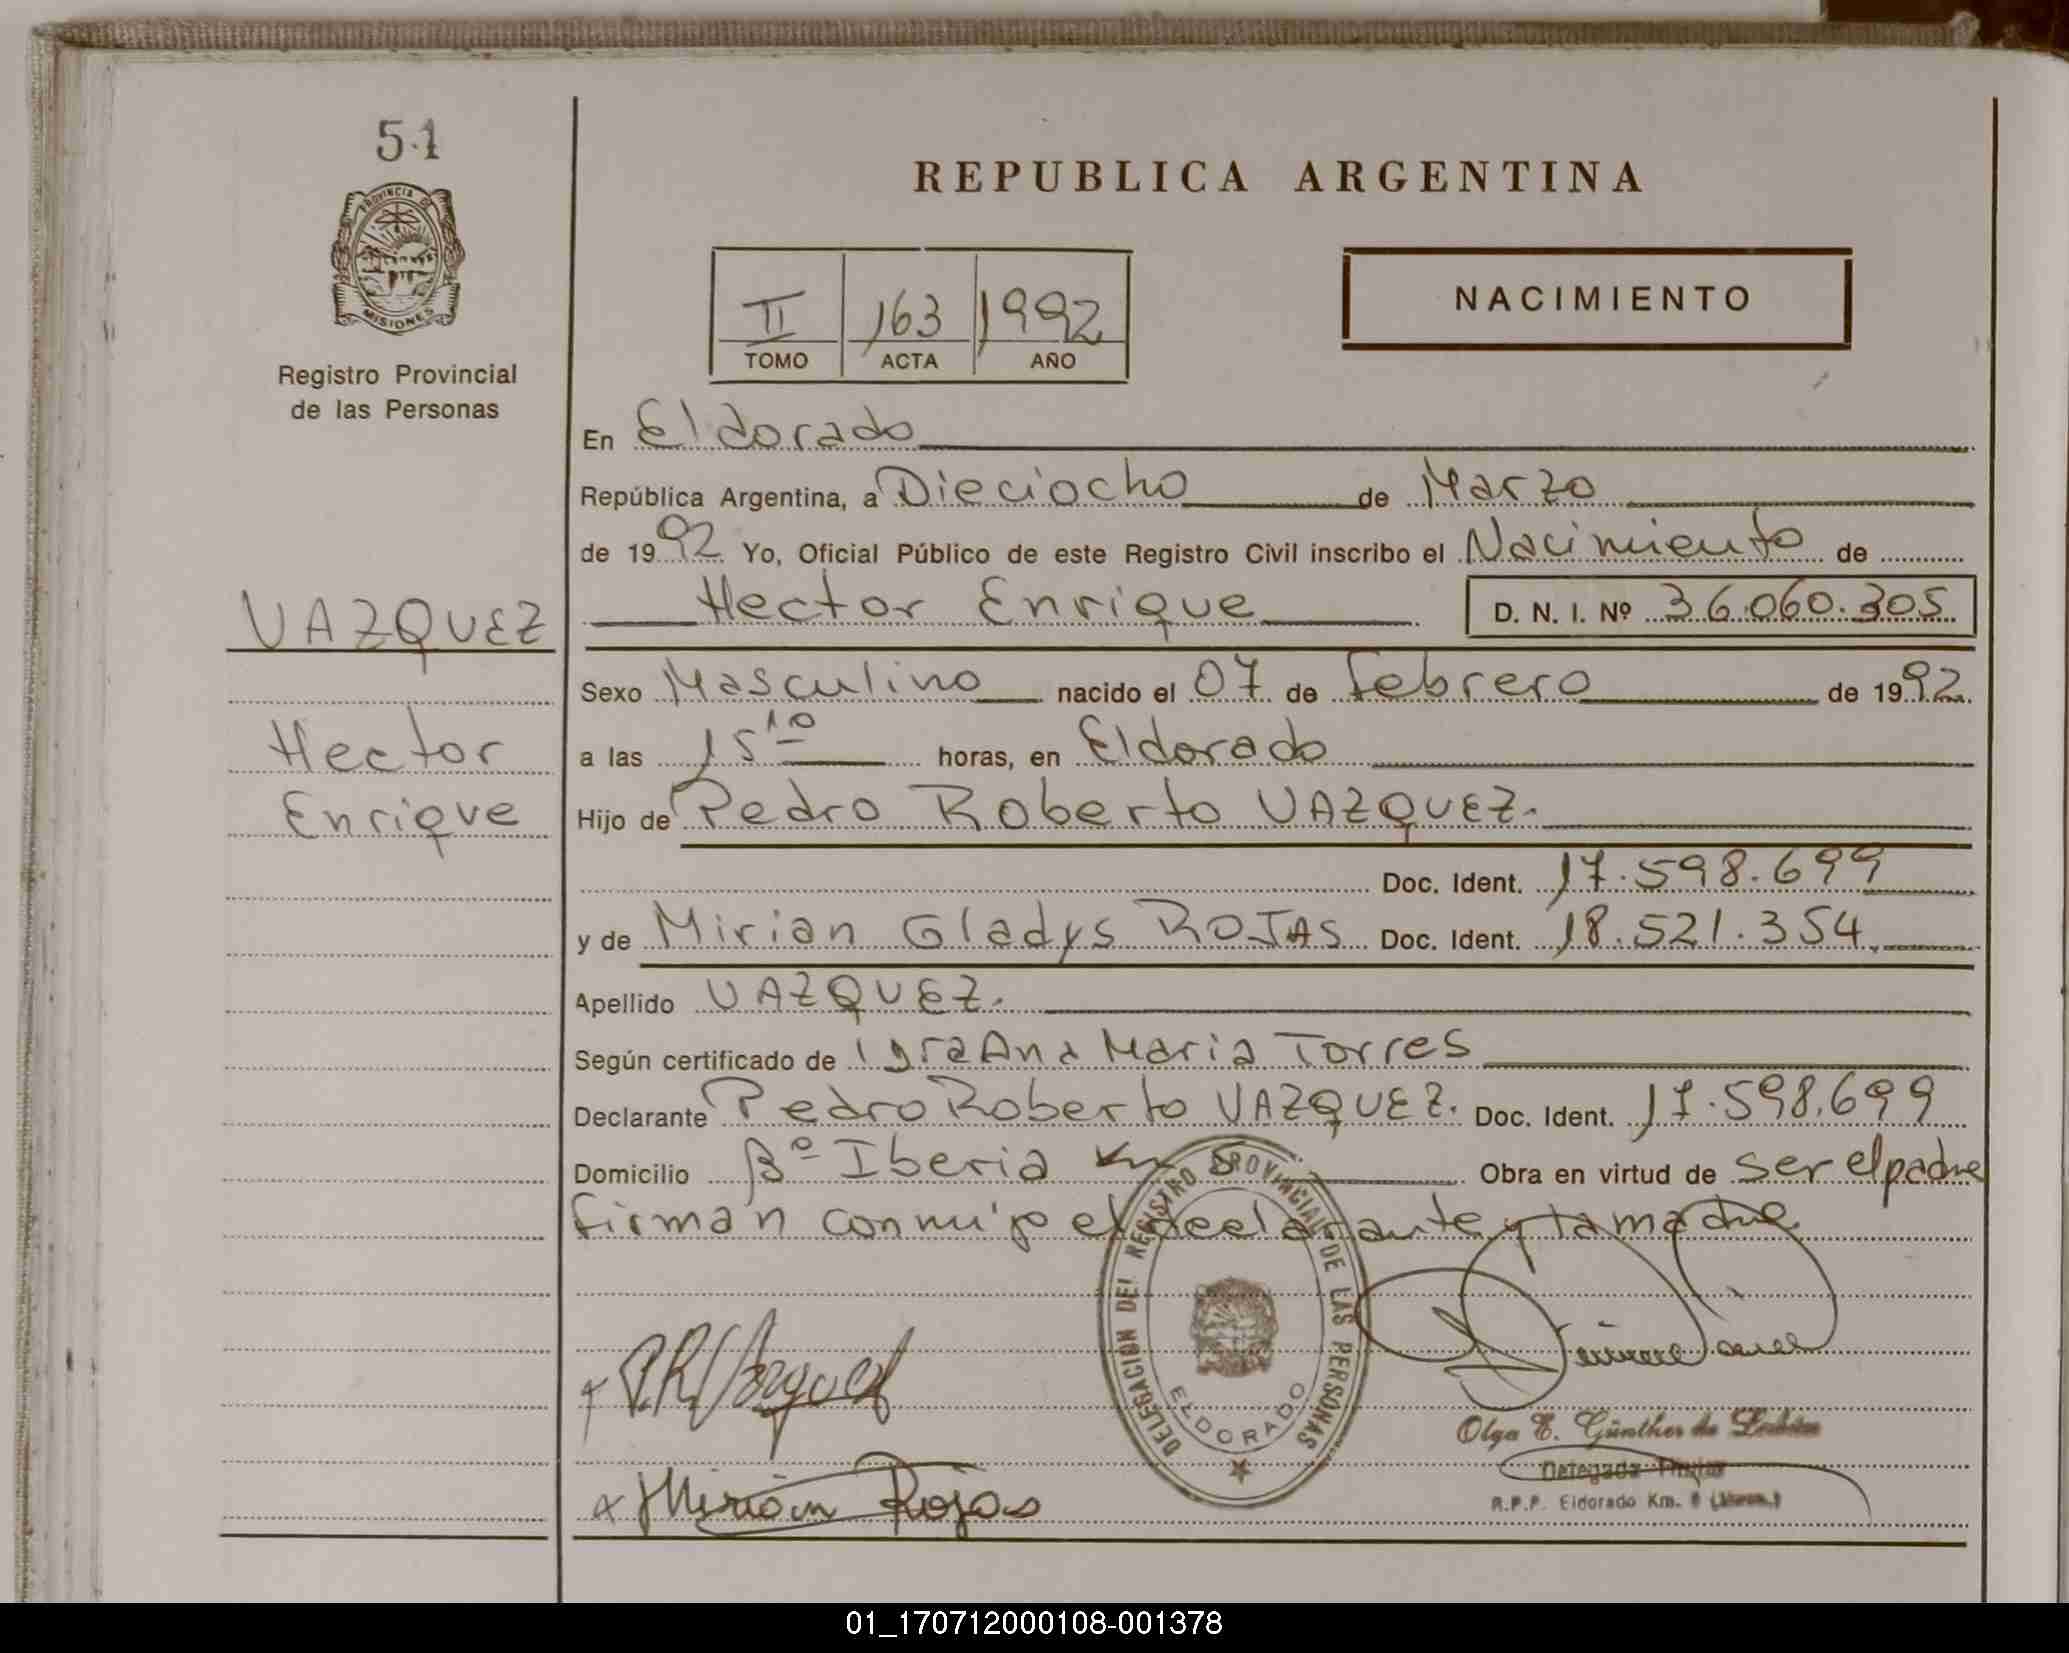 51
PROVINCIA DE
MISIONES
Registro Provincial
de las Personas
REPUBLICA ARGENTINA
II 163 1992
TOMO ACTA AÑO
NACIMIENTO
En Eldorado
República Argentina, a Dieciocho de Marzo
de 1992 Yo, Oficial Público de este Registro Civil inscribo el Nacimiento de
Hector Enrique D. N. I. Nº 36.060.305
VAZQUEZ
Sexo Masculino nacido el 07 de febrero de 1992.
Hector
a las 15 10 horas, en Eldorado
Enrique
Hijo de Pedro Roberto VAZQUEZ.
Doc. Ident. 17.598.699
y de Mirian Gladys ROJAS Doc. Ident. 18.521.354.
Apellido VAZQUEZ.
Según certificado de Ana Maria Torres
Declarante Pedro Roberto VAZQUEZ. Doc. Ident. 17.598.699
Domicilio Bº Iberia Km 5 Obra en virtud de ser el padre
firman conmigo el declarante y la madre.
DELEGACION DEL REGISTRO PROVINCIAL DE LAS PERSONAS
ELDORADO
P.R. Vazquez
Olga E. Günther de
Delegada Titular
Mirian Rojas
R.P.P. Eldorado Km.
01_170712000108-001378